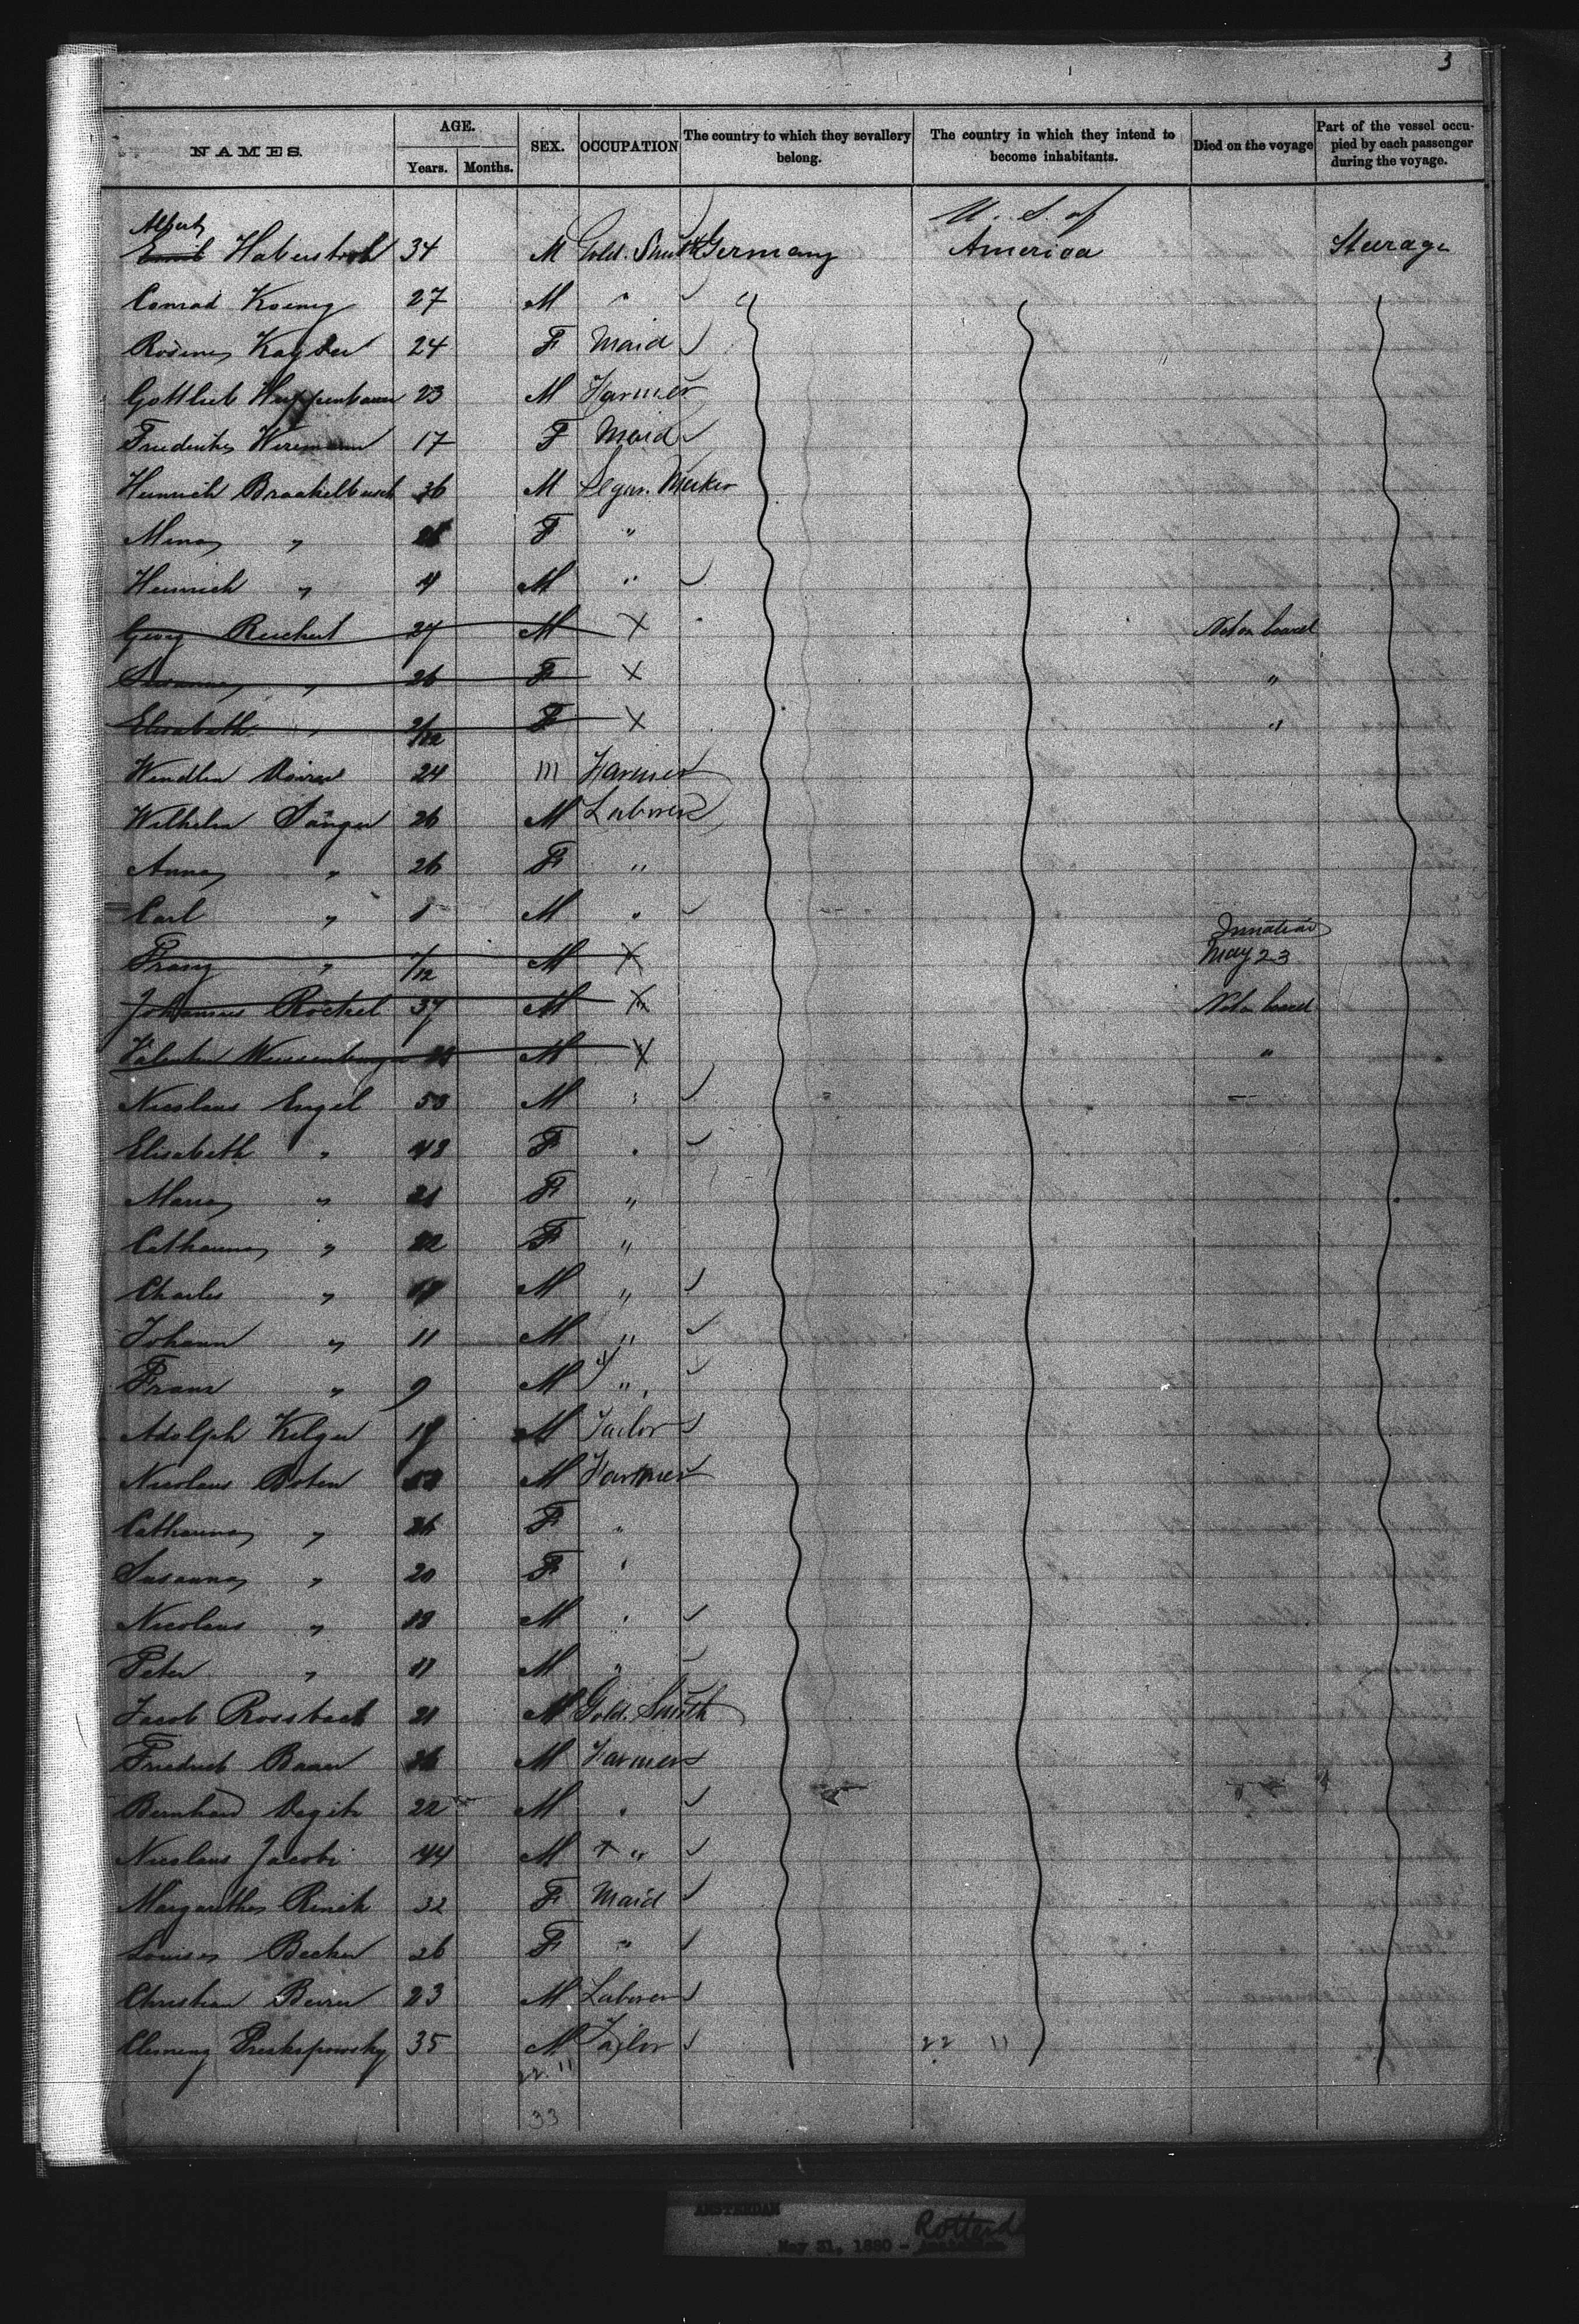 3
NAMES. AGE. SEX. OCCUPATION The country to which they sevallery belong. The country in which they intend to become inhabitants. Died on the voyage Part of the vessel occupied by each passenger during the voyage.
Years. Months.
Albert U. S. of
Emil Haberstroh 34 M Gold. Smith Germany America Steerage
Conrad Koenig 27 M "
Rosina Kayser 24 F Maid
Gottlieb 23 M Farmer
Friederike 17 F Maid
Heinrich Braakelbusch 36 M Segar. Maker
Mina " F "
Heinrich " 4 M "
Georg Reichert 27 M X Not on board
Susanna " 26 F X "
Elisabeth " F X "
Wendlin 24 M Farmer
Wilhelm Sänger 26 M Laborer
Anna " 26 F "
Carl " 1 M "
Inanation
Franz " 7/12 M X May 23
Johannes Röckel 37 M X Not on board
Valentin M X "
Nicolaus Engel 53 M "
Elisabeth " 48 F "
Maria " 21 F "
Catharina " 22 F "
Charles " M "
Johann " 11 M "
Franz " 9 M "
Adolph Kilger 19 M Tailor
Nicolaus Boten M Farmer
Catharina " 26 F "
Susanna " 20 F "
Nicolaus " 12 M "
Peter " 11 M "
Jacob Rossbach 21 M Gold. Smith
Friedrich Bauer 26 M Farmer
Bernhard 22 M "
Nicolaus Jacobi 44 M "
Margaretha 32 F Maid
Louisa Becker 26 F "
Christian 23 M Laborer
Clemenz 35 M Tailor 22 11
22 11
33
AMSTERDAM
Rotterd
May 31, 1880 - Amsterdam